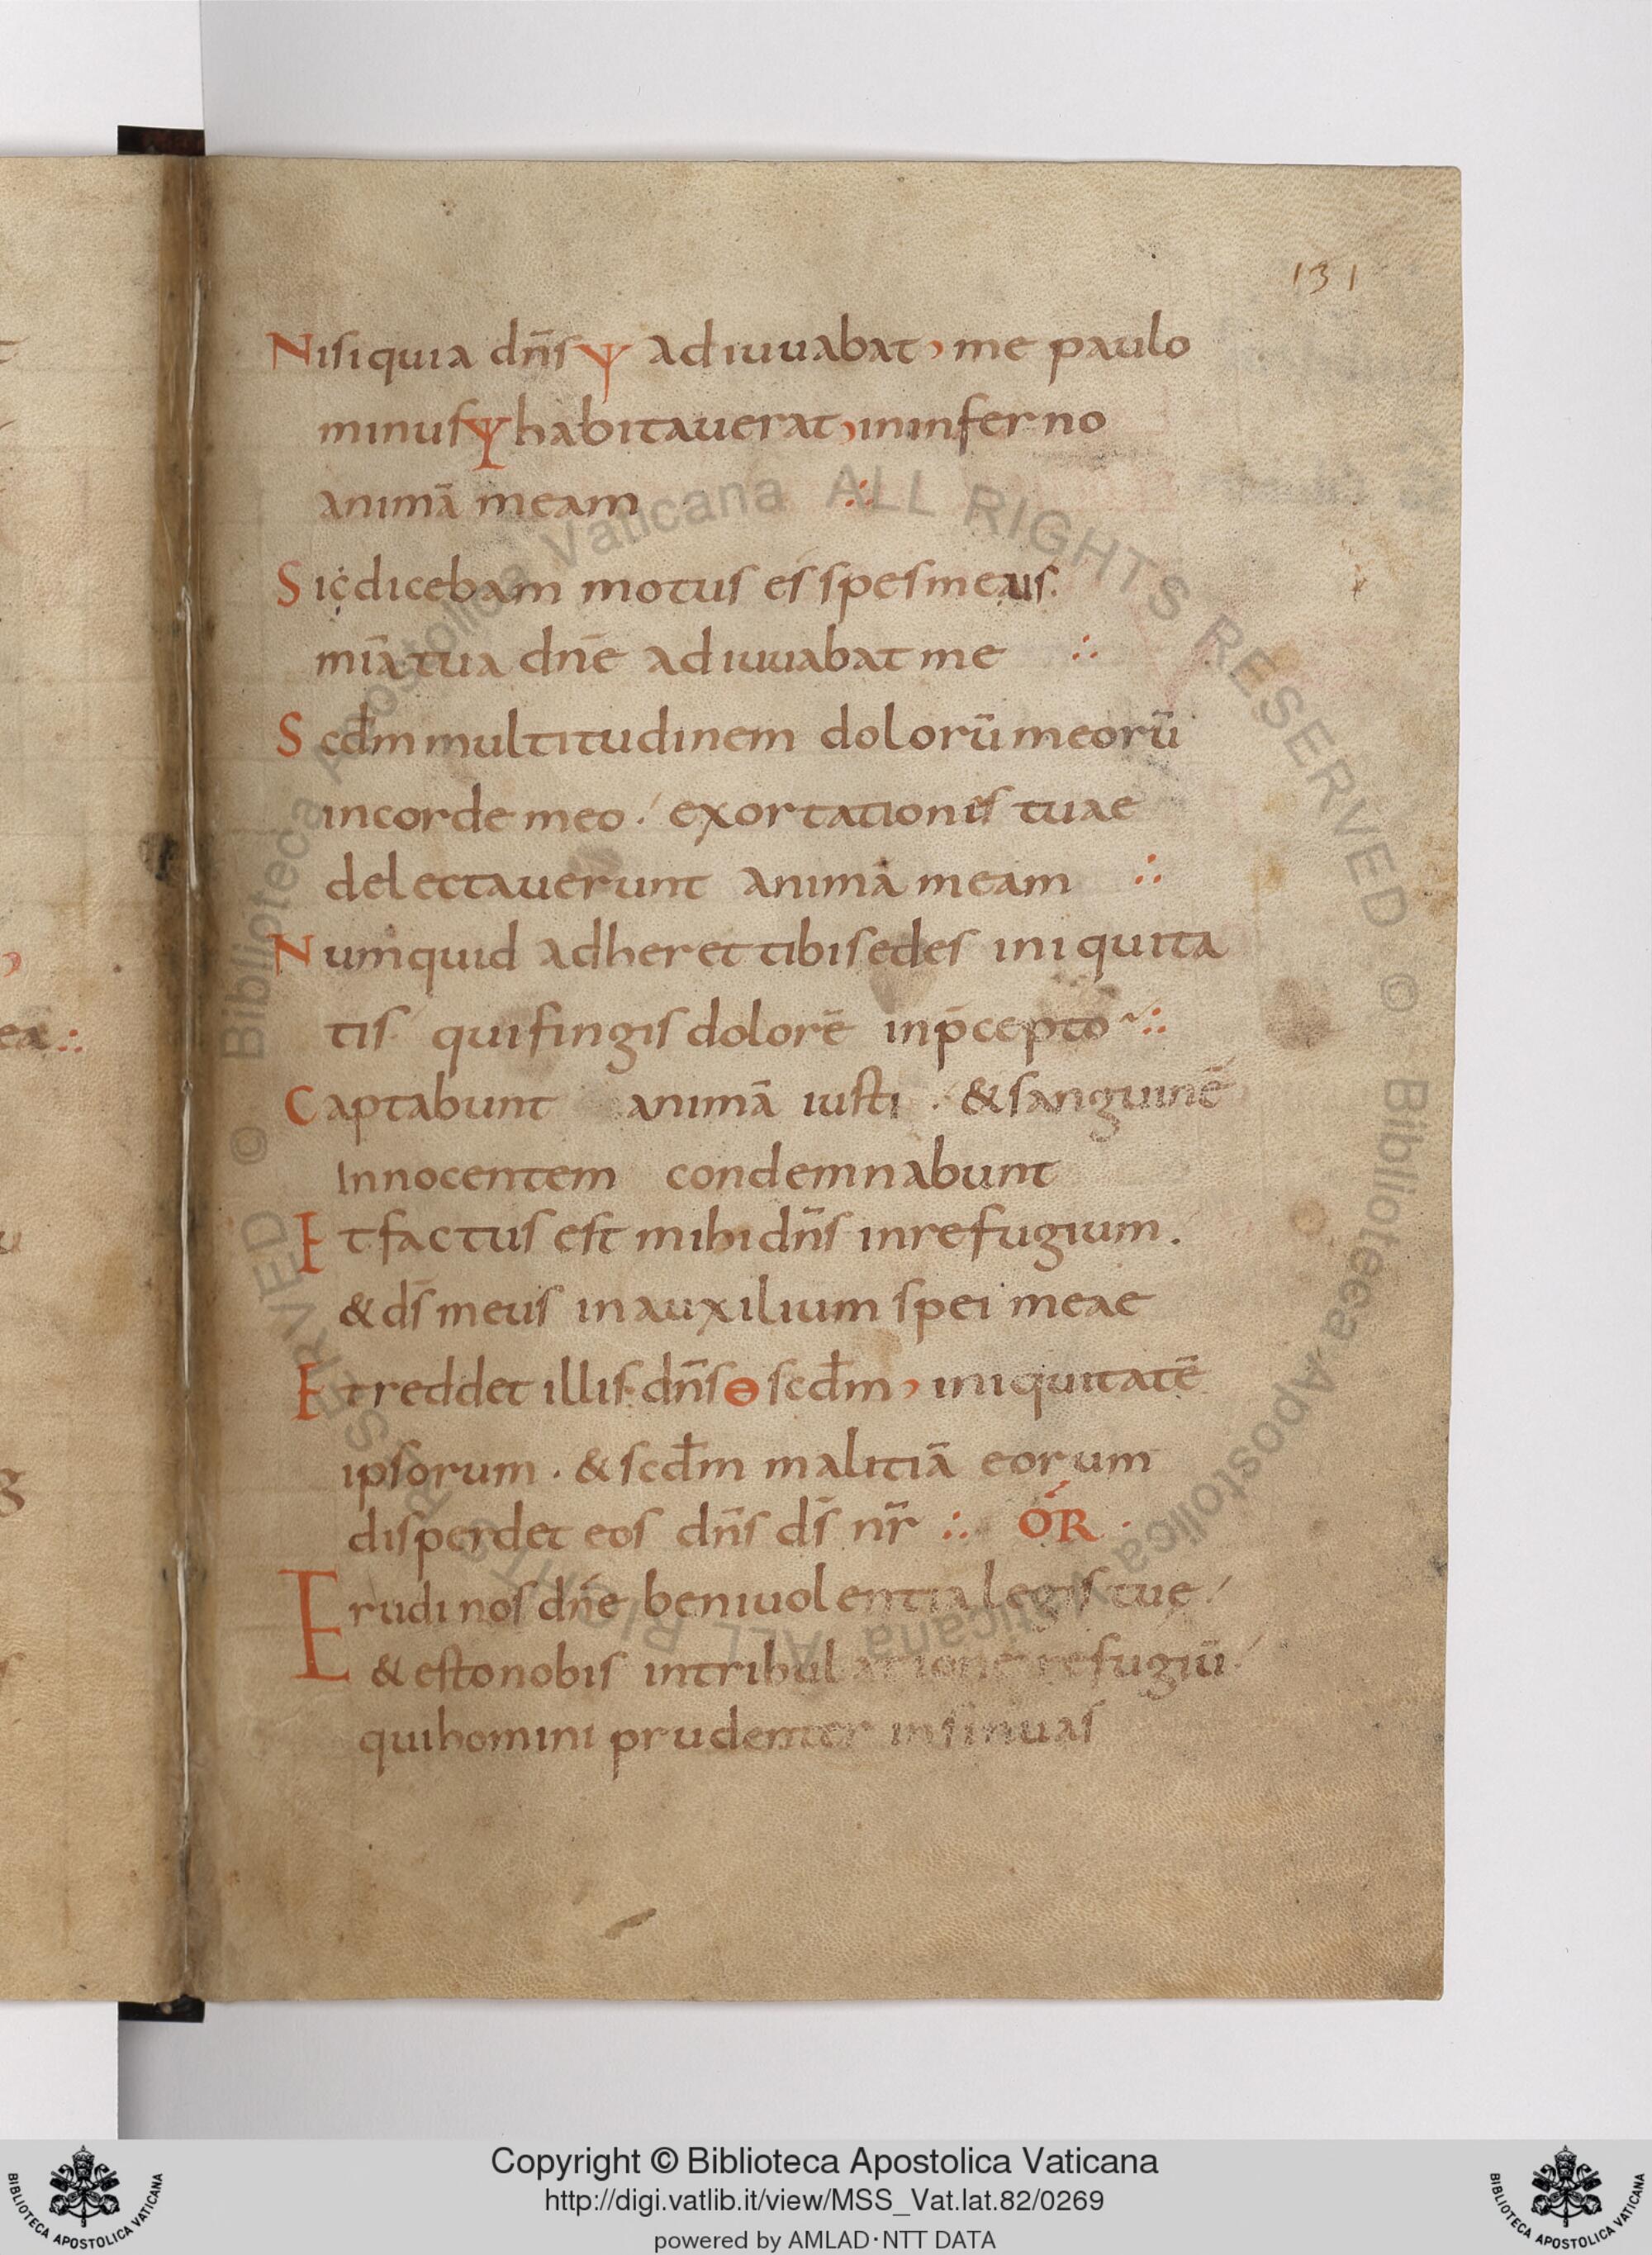 131
Nisiquia dn̄s ψ adiuuabat, me paulo
minus ψ habitauerat, ininferno
animā meam ∴
Sic dicebam motus es spes meus.
mīa tua dn̄e adiuuabat me ∴
Scdm̄ multitudinem dolorū meorū
incorde meo ./ exortationes tuae
delectauerunt animā meam ∴
Numquid adheret tibi sedes iniquita
tis qui fingis dolorē inp̄cepto ~∴
Captabunt animā iusti . & sanguinē
Innocentem condemnabunt
Et factus est mihi dn̄s inrefugium.
& ds̄ meus inauxilium spei meae
Et reddet illis dn̄s Θ scdm̄, iniquitatē
ipsorum . & scdm̄ malitiā eorum
disperdet eos dn̄s ds̄ nr̄ ∴ OR̄ .
Erudi nos dn̄e beniuolentia legis tuę /
& esto nobis intribulatione refugiū /
qui homini prudenter insinuas
ea ∴
© Biblioteca Apostolica Vaticana ALL RIGHTS RESERVED © Biblioteca Apostolica Vaticana ALL RIGHTS RESERVED
Copyright © Biblioteca Apostolica Vaticana
http://digi.vatlib.it/view/MSS_Vat.lat.82/0269
powered by AMLAD·NTT DATA
BIBLIOTECA APOSTOLICA VATICANA
BIBLIOTECA APOSTOLICA VATICANA